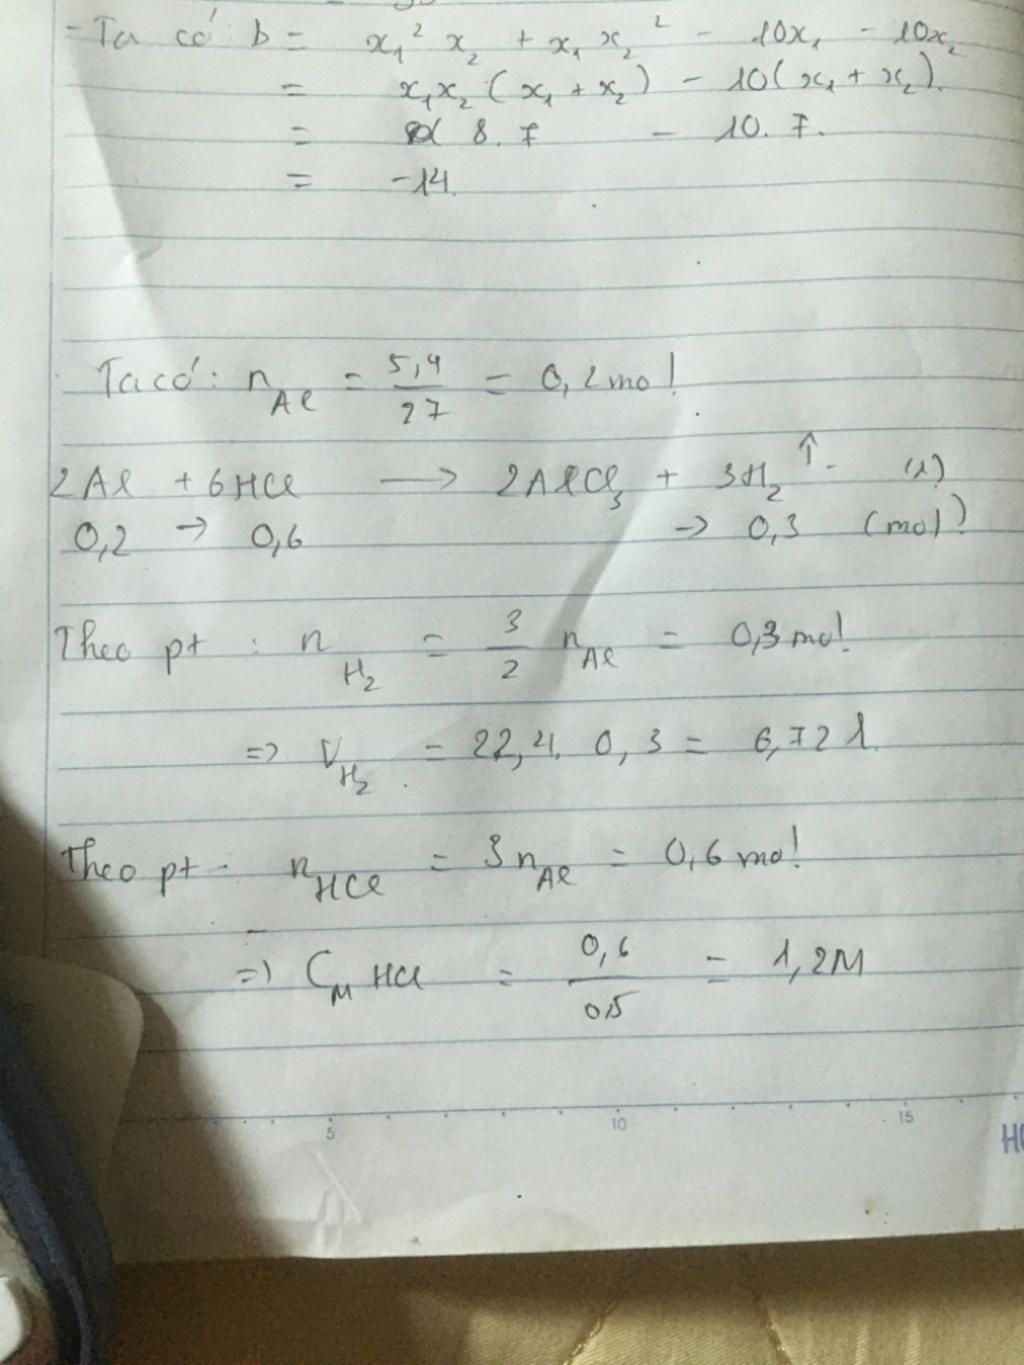 - Ta có b = x₁² x₂ + x₁ x₂² - 10x₁ - 10x₂
= x₁x₂ (x₁ + x₂) - 10(x₁ + x₂).
= 8. 7 - 10. 7.
= -14.
Ta có: n Al = 5,4/27 = 0,2 mol
2Al + 6HCl → 2AlCl₃ + 3H₂ ↑. (1)
0,2 → 0,6 → 0,3 (mol)
Theo pt : n H₂ = 3/2 n Al = 0,3 mol
=> V H₂ = 22,4. 0,3 = 6,72 l.
Theo pt - n HCl = 3 n Al = 0,6 mol
=> C M HCl = 0,6/0,5 = 1,2M
5 10 15